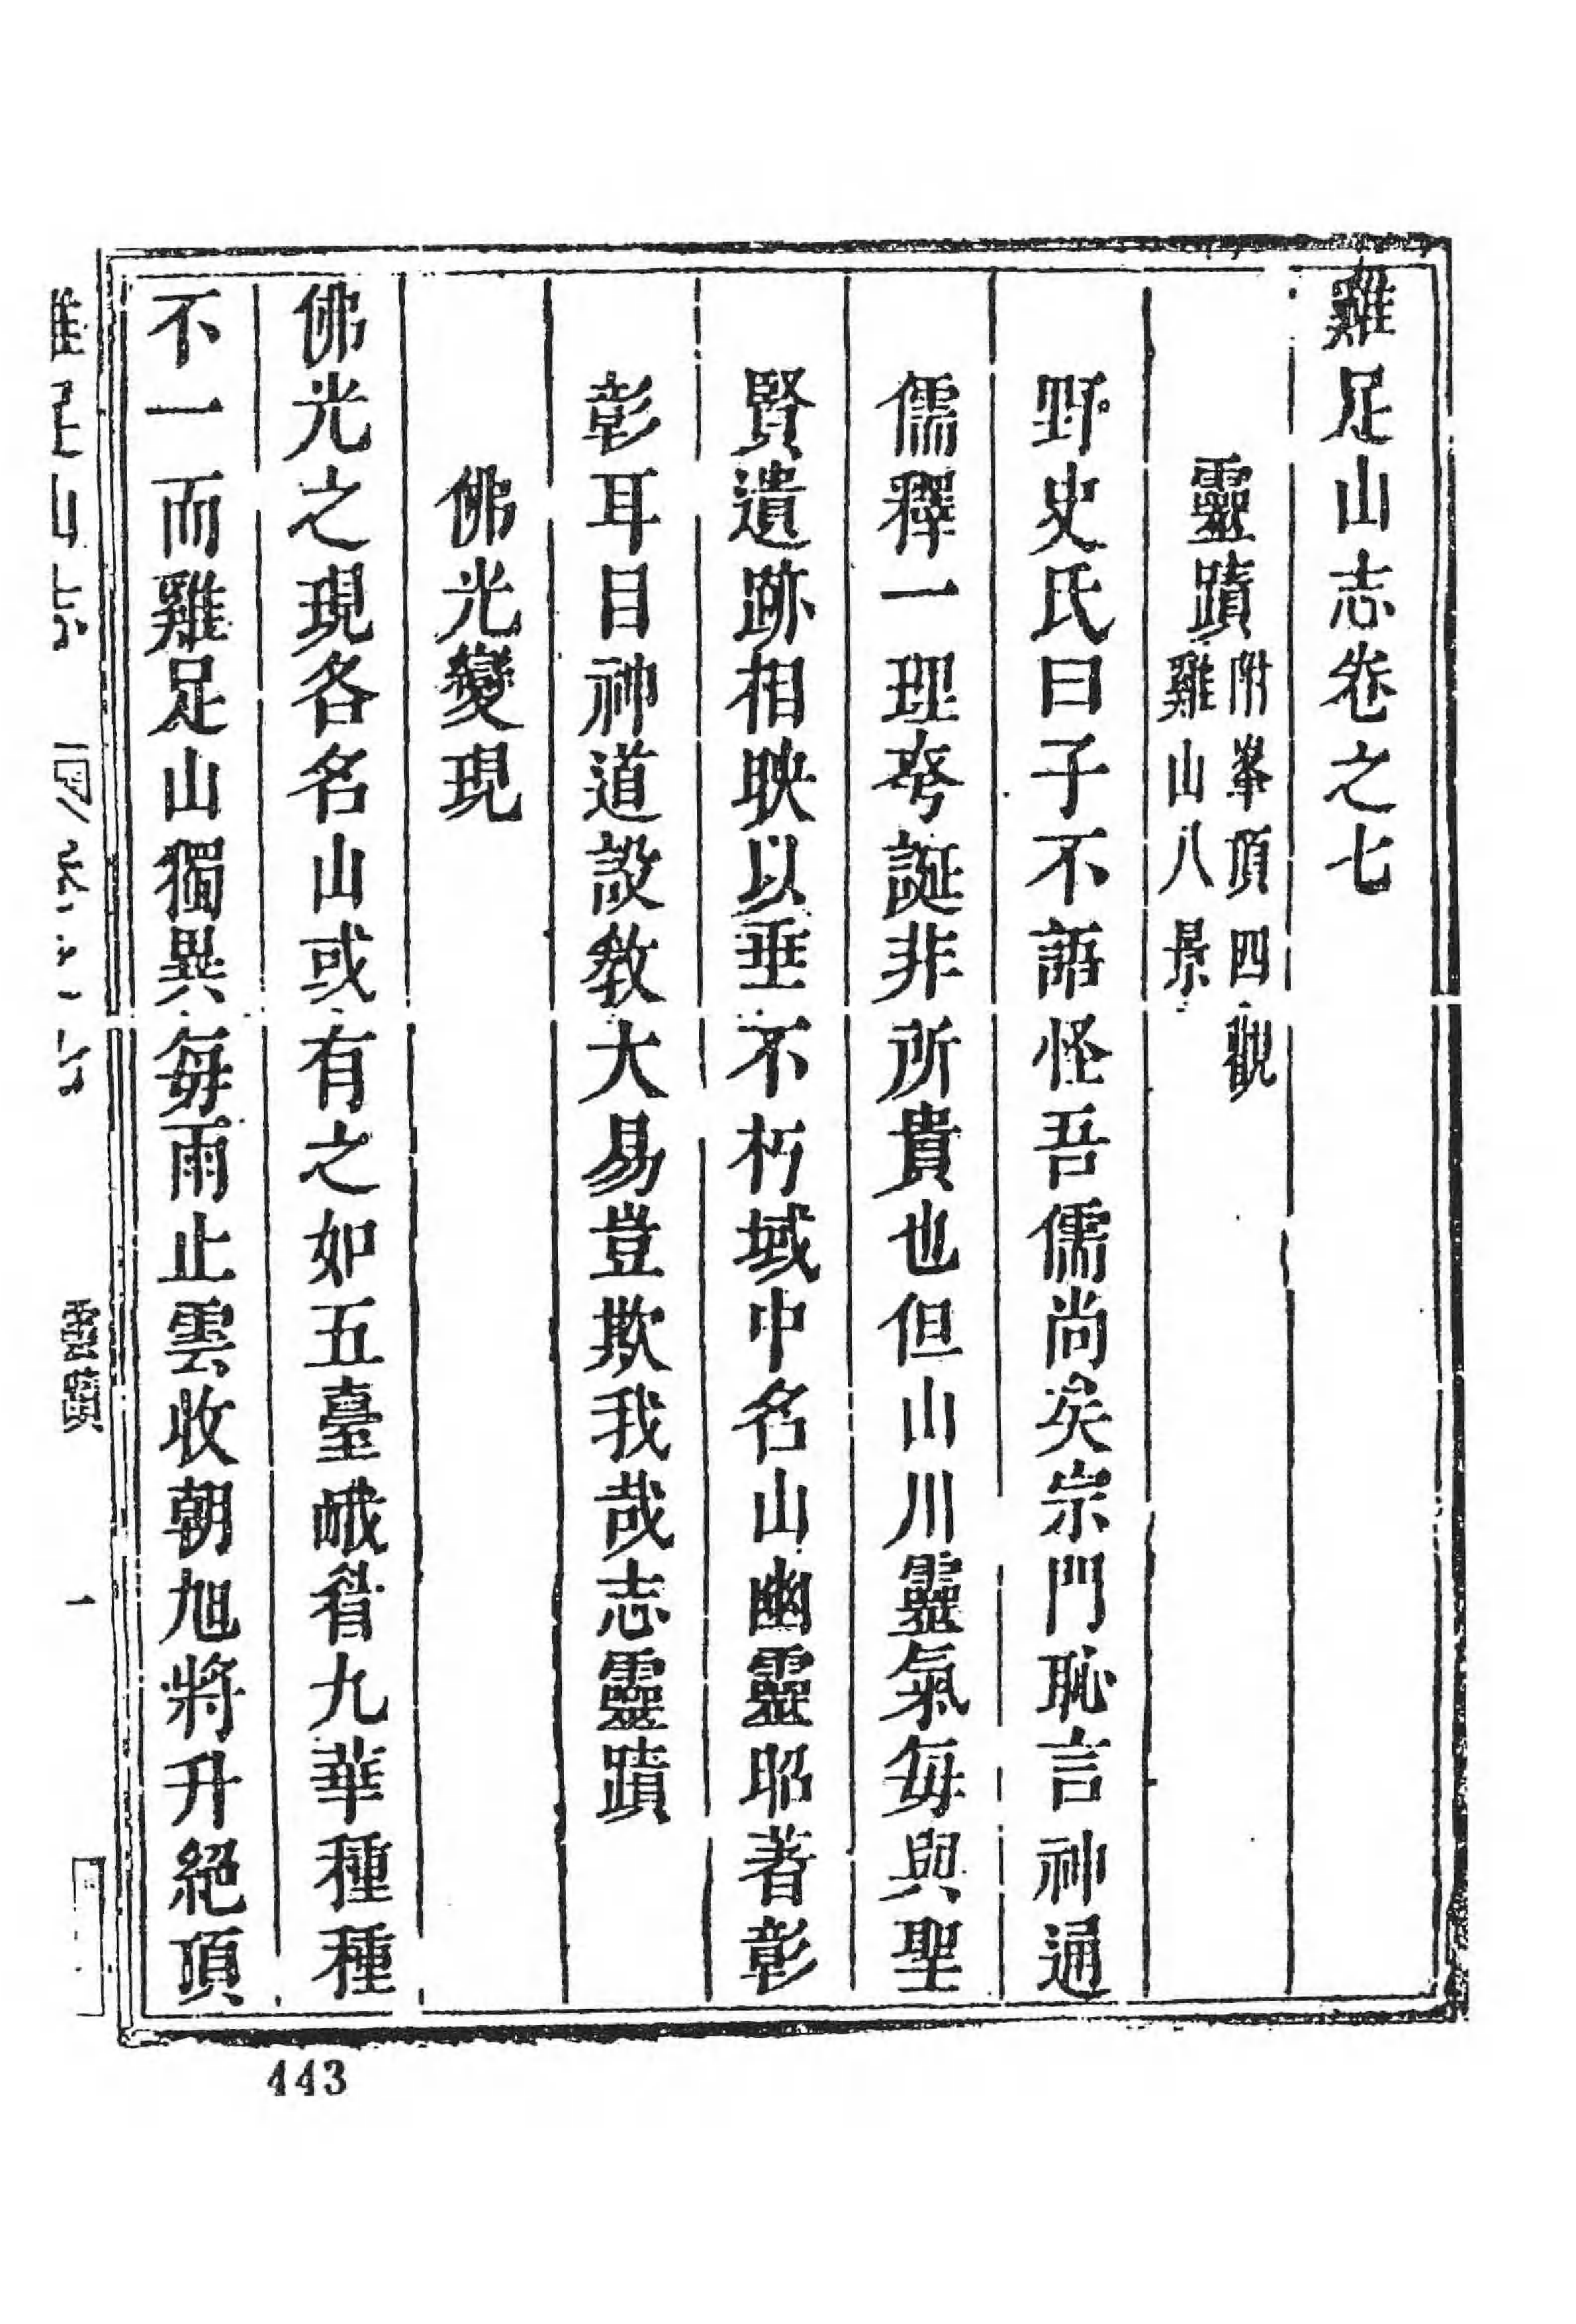 雞足山志卷之七
靈蹟 附峯頂四觀
雞山八景
野史氏曰子不語怪吾儒尚矣宗門恥言神通
儒釋一理夸誕非所貴也但山川靈氣每與聖
賢遺跡相映以垂不朽域中名山幽靈昭著彰
彰耳目神道設教大易豈欺我哉志靈蹟
佛光變現
佛光之現各名山或有之如五臺峨眉九華種種
不一而雞足山獨異每雨止雲收朝旭將升絕頂
雞足山志
靈蹟
一
443